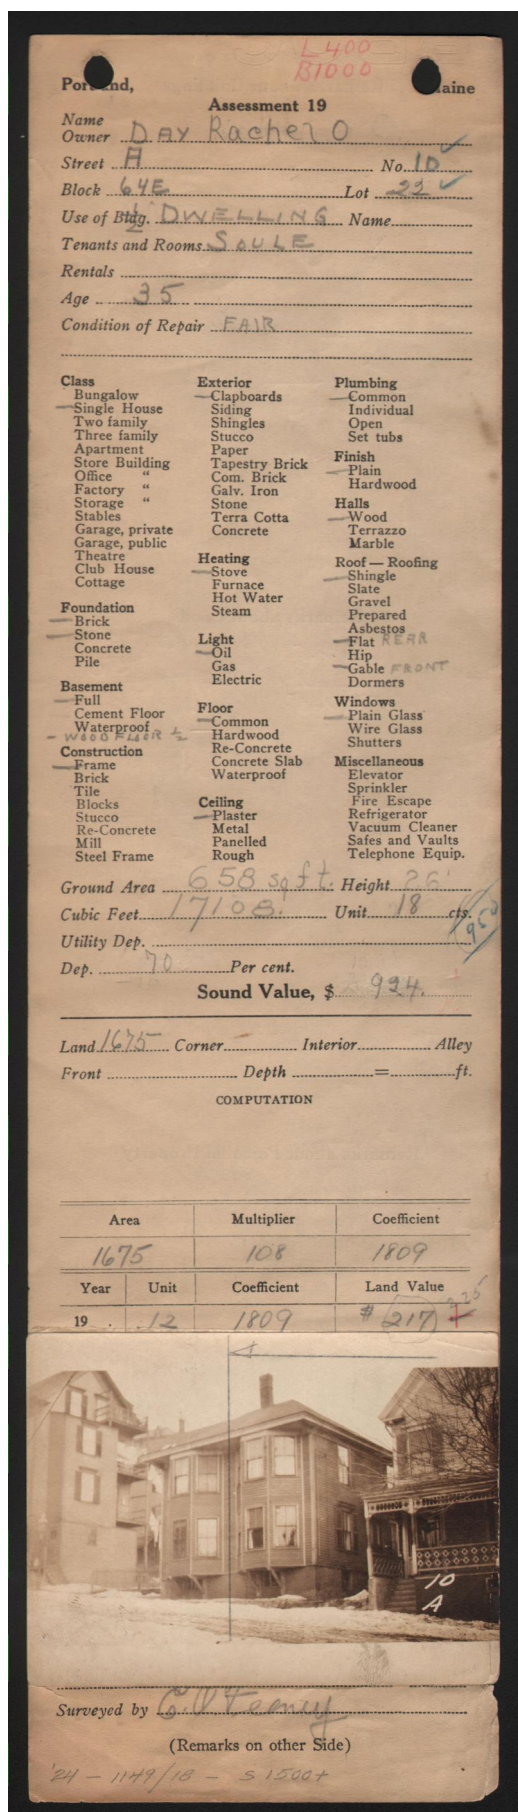 L 400
B 1000
Portland, Maine
Assessment 19
Name
Owner DAY Rachel O
Street A No. 10
Block 64E Lot 22
Use of Bldg. 1/2 DWELLING Name
Tenants and Rooms SOULE
Rentals
Age 35
Condition of Repair FAIR
Class
Bungalow
Single House
Two family
Three family
Apartment
Store Building
Office "
Factory "
Storage "
Stables
Garage, private
Garage, public
Theatre
Club House
Cottage
Foundation
Brick
Stone
Concrete
Pile
Basement
Full
Cement Floor
Waterproof
- WOOD FLOOR 1/2
Construction
Frame
Brick
Tile
Blocks
Stucco
Re-Concrete
Mill
Steel Frame
Exterior
Clapboards
Siding
Shingles
Stucco
Paper
Tapestry Brick
Com. Brick
Galv. Iron
Stone
Terra Cotta
Concrete
Heating
Stove
Furnace
Hot Water
Steam
Light
Oil
Gas
Electric
Floor
Common
Hardwood
Re-Concrete
Concrete Slab
Waterproof
Ceiling
Plaster
Metal
Panelled
Rough
Plumbing
Common
Individual
Open
Set tubs
Finish
Plain
Hardwood
Halls
Wood
Terrazzo
Marble
Roof — Roofing
Shingle
Slate
Gravel
Prepared
Asbestos
Flat REAR
Hip
Gable FRONT
Dormers
Windows
Plain Glass
Wire Glass
Shutters
Miscellaneous
Elevator
Sprinkler
Fire Escape
Refrigerator
Vacuum Cleaner
Safes and Vaults
Telephone Equip.
Ground Area 658 sq ft. Height 26'
Cubic Feet 17108. Unit 18 cts.
950
Utility Dep.
Dep. 70 Per cent.
Sound Value, $ 924.
Land 1675 Corner Interior Alley
Front Depth = ft.
COMPUTATION
Area Multiplier Coefficient
1675 108 1809
Year Unit Coefficient Land Value
225
19 .12 1809 $ 217
10
A
Surveyed by
(Remarks on other Side)
'24 - 1149/18 - S 1500+